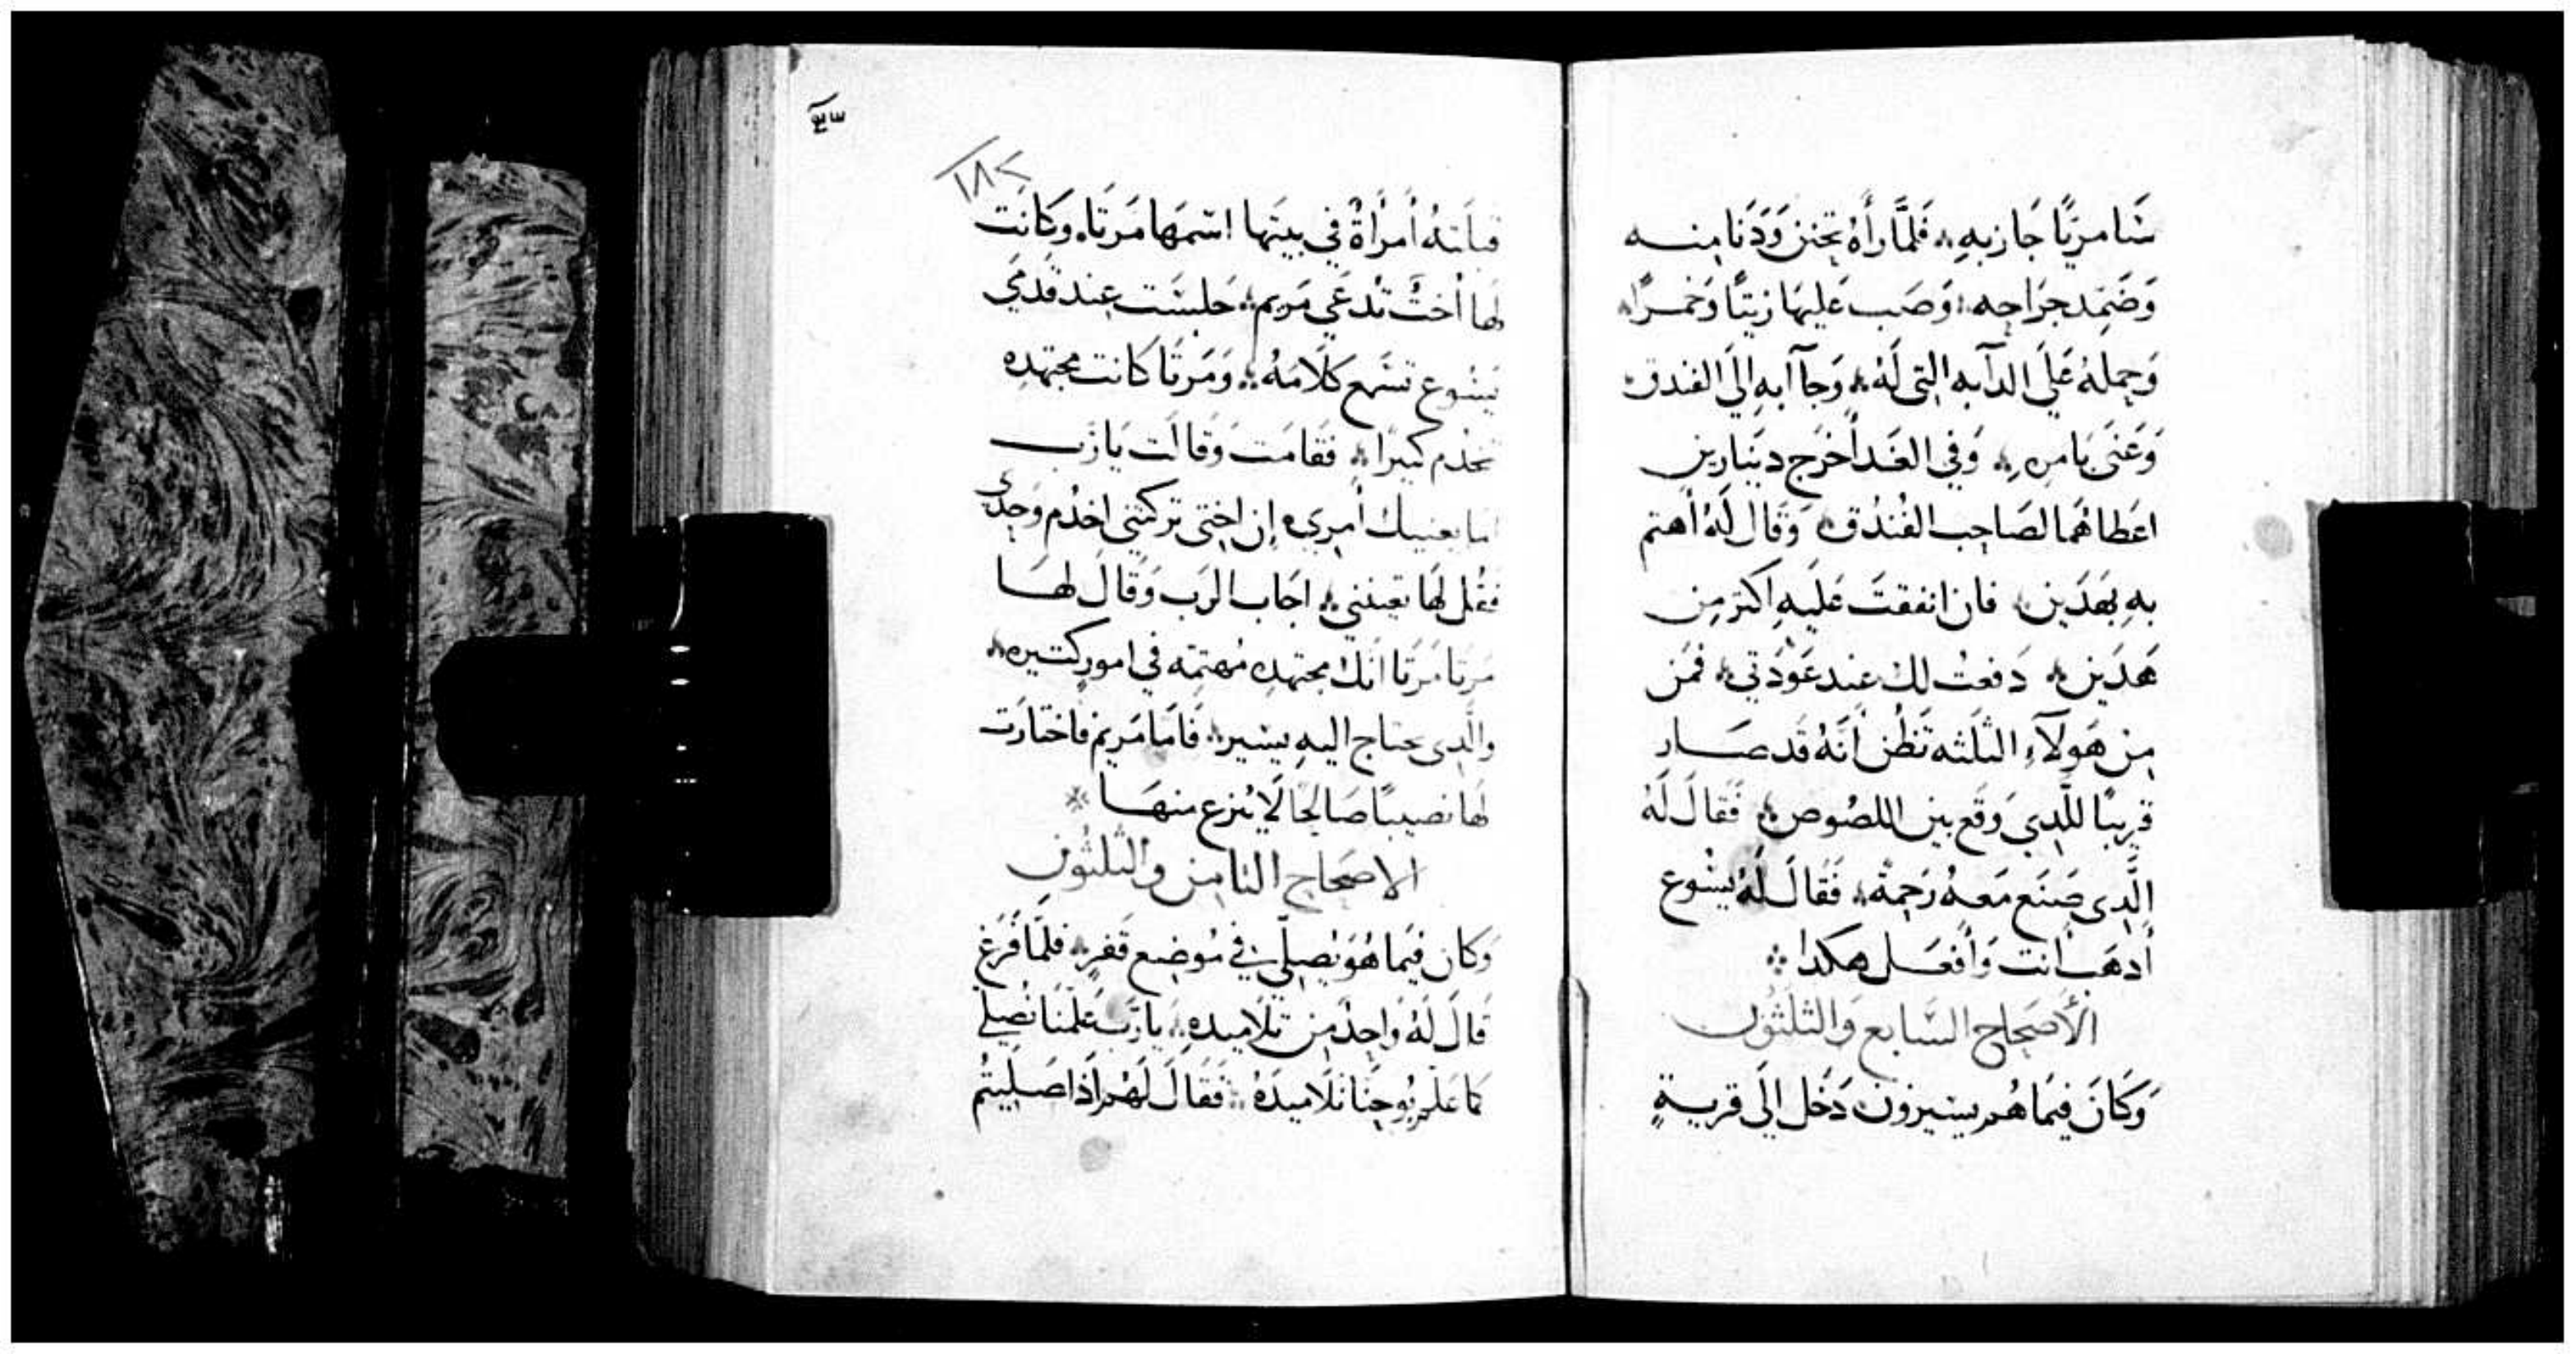 سَامريًا جَاز بِهِ فَلمَّا رأَهُ تحنن وَدَنا مِنه
وَضَمِد جرَاحه وَصَب عَليهَا زيتًا وَخمرًا
وَحمِلهُ عَلَي الدآبه التِى لَهُ وَجآ آبهِ الَي الفندق
وَعَنَى بَامرِهِ وَفي الغَد أخرَج دينَارين
اعَطاهُما لصَاحِب الفُندُق وَقَال لَهُ أهتم
بهِ بهَدَين فان انفقتَ عَليهِ اكتر مِن
هَدَين دَفعتُ لِك عِند عَوْدَتي فمَن
مِن هَولآءِ الثَلثه تَظُن أنَهُ قَد صَار
قرِيبًا للَّدِي وَقَع بين اللصُوص فَقالَ لَهُ
الَّدِى صَنَع مَعهُ رَحِمةً فَقَالَ لَهُ يسُوع
أدهَب أنت وَأفعَل هكدا
الأصَحاح السَّابع وَالثلثوُن
وَكَانَ فيمَا هُم يسيرُون دَخَل الَي قريةٍ
٣٣
١٨٢
قبلَتهُ أمرَأةٌ في بيتهَا اسمَهَا مَرتَا وَكانَت
لهَا أختٌ تدعَي مَريم جَلسَت عِند قدمَي
يَسُوع تسَمع كَلَامَهُ وَمَرتَا كَانت مجتهدِه
تخدم كتيرًا فقامَت وَقالَت يَا رَب
اما يعنيك أمرِي إن اختِى تركتنى اخدُم وَحدِى
فقُل لهَا تعِيننِي اجَاب الرَب وَقَال لهَا
مَرتا مَرتَا انَك مجتهدِه مُهتمِّه في امورٍ كتيره
وَالَّدِى يحتاج اليهِ يسير فَامَا مَريم فاختارَت
لهَا نصيبًا صَالحًا لَا يُنزع منهَا
الاصحَاح التامِن وَالثلثوُن
وَكان فيمَا هُوَ يُصلِّي في مَوضِع قَفرٍ فلمَّا فَرَغ
قَالَ لَهُ وَاحِدٌ مِن تلاميدهِ يا رَب عَلّمنَا نُصَلي
كمَا عَلّم يُوحَنَا تَلَاميدَهُ فَقَالَ لَهُم أذَا صَليتُم